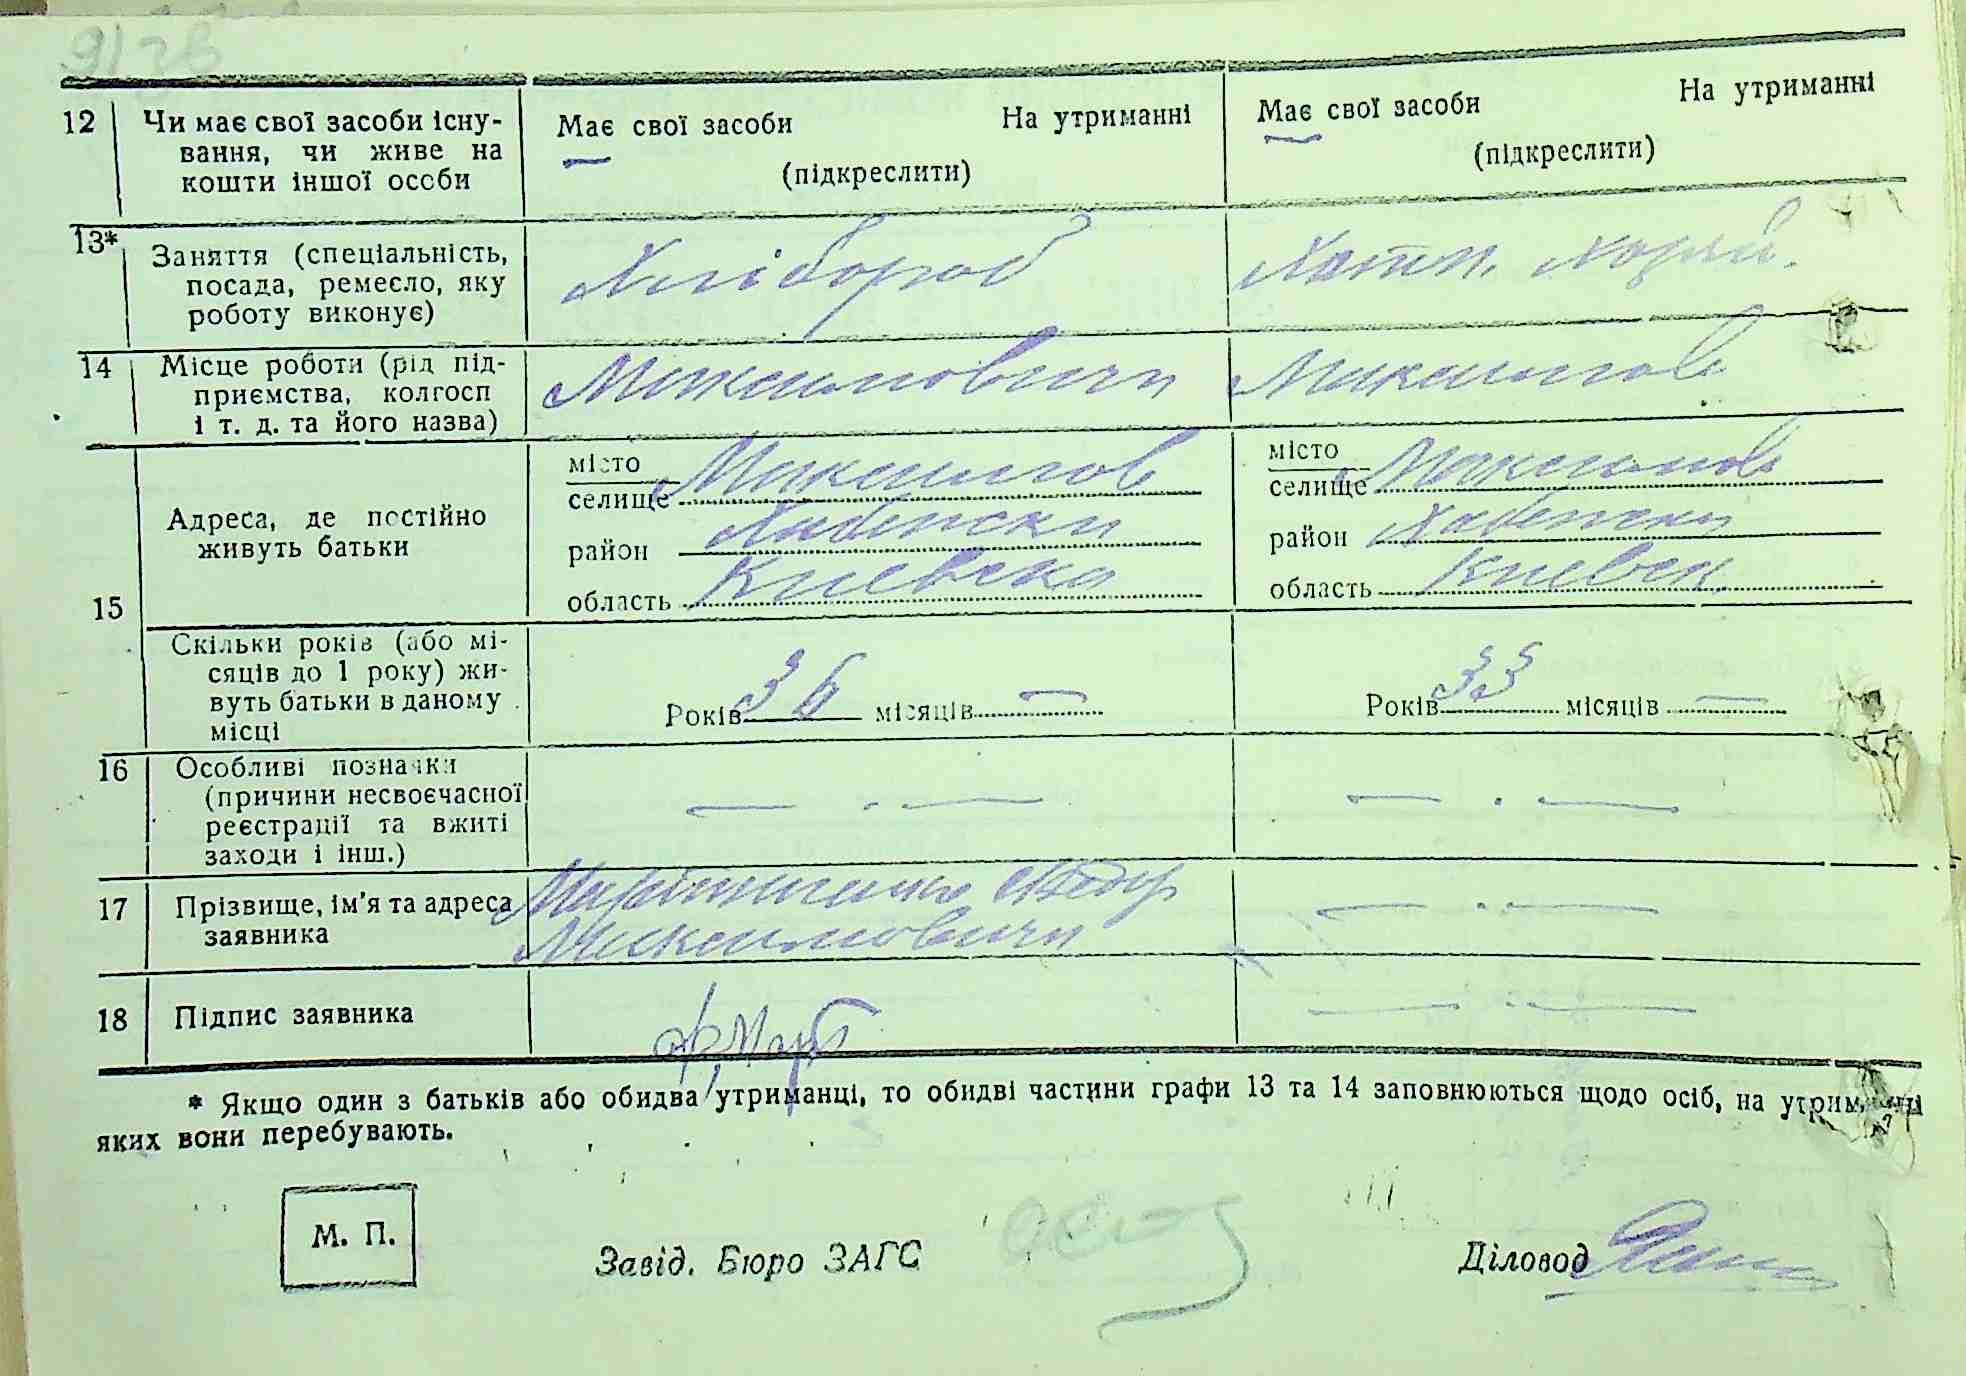 12 Чи має свої засоби існу-
вання, чи живе на
кошти іншої особи
Має свої засоби На утриманні
(підкреслити)
Має свої засоби На утриманні
(підкреслити)
13* Заняття (спеціальність,
посада, ремесло, яку
роботу виконує)
Хлібороб
Хатн. хозяй.
14 Місце роботи (рід під-
приємства, колгосп
і т. д. та його назва)
Максимовичи
Максимов
15 Адреса, де постійно
живуть батьки
місто
селище Максимов
район Хабенски
область Киевска
місто
селище Максимов
район Хабенски
область Киевск
Скільки років (або мі-
сяців до 1 року) жи-
вуть батьки в даному
місці
Років 36 місяців —
Років 33 місяців —
16 Особливі позначки
(причини несвоєчасної
реєстрації та вжиті
заходи і інш.)
— . —
— . —
17 Прізвище, ім'я та адреса
заявника
Максимовичи
— . —
18 Підпис заявника
— . —
* Якщо один з батьків або обидва утриманці, то обидві частини графи 13 та 14 заповнюються щодо осіб, на утриманні
яких вони перебувають.
М. П.
Завід. Бюро ЗАГС
Діловод